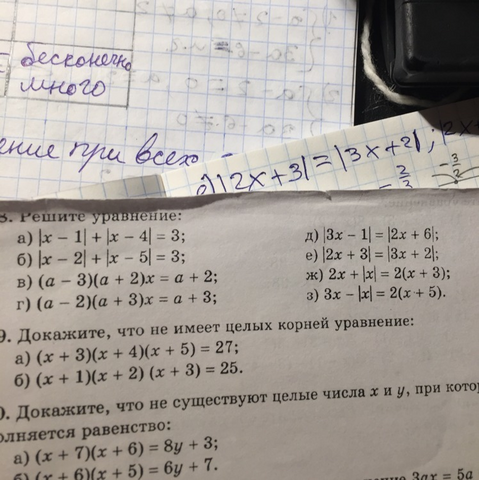 бесконечно
много
ение при всех -
|2x+3|=|3x+2|;
8. Решите уравнение:
а) |x − 1| + |x − 4| = 3;
б) |x − 2| + |x − 5| = 3;
в) (a − 3)(a + 2)x = a + 2;
г) (a − 2)(a + 3)x = a + 3;
д) |3x − 1| = |2x + 6|;
е) |2x + 3| = |3x + 2|;
ж) 2x + |x| = 2(x + 3);
з) 3x − |x| = 2(x + 5).
9. Докажите, что не имеет целых корней уравнение:
а) (x + 3)(x + 4)(x + 5) = 27;
б) (x + 1)(x + 2) (x + 3) = 25.
0. Докажите, что не существуют целые числа x и y, при кото
олняется равенство:
а) (x + 7)(x + 6) = 8y + 3;
б) (x + 6)(x + 5) = 6y + 7.
3ax = 5a